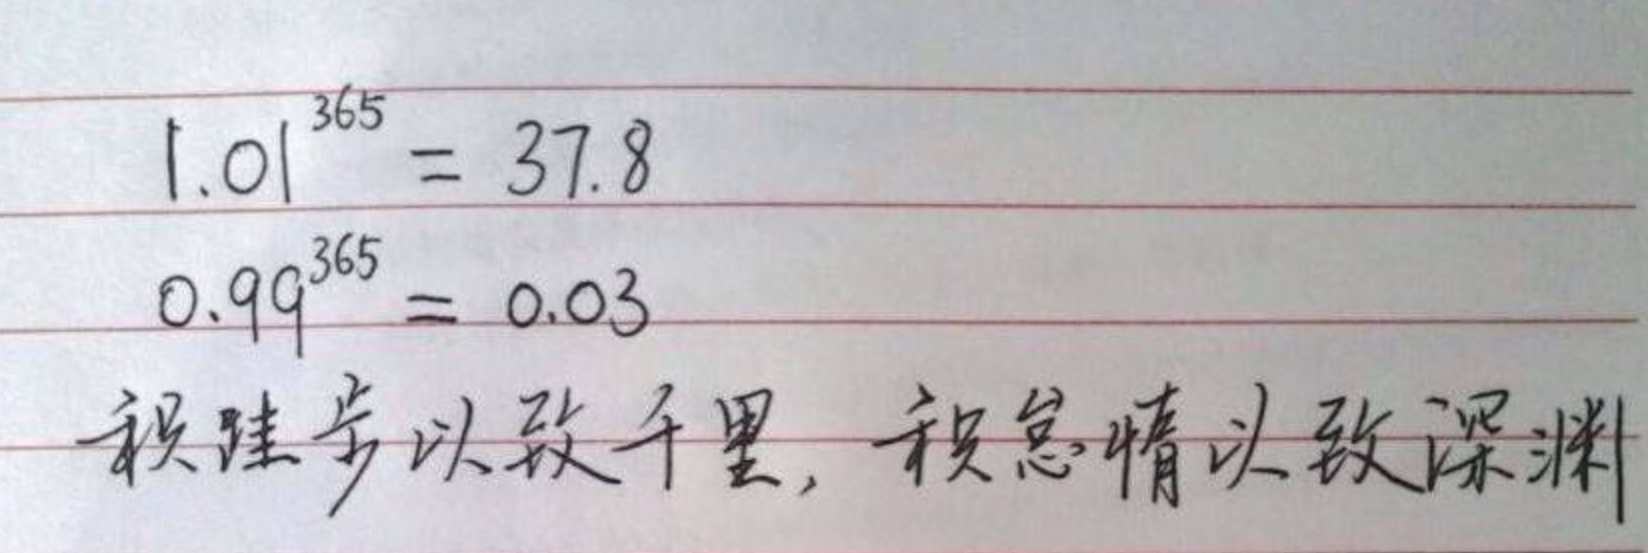 1.01^365 = 37.8
0.99^365 = 0.03
积跬步以致千里，积怠惰以致深渊